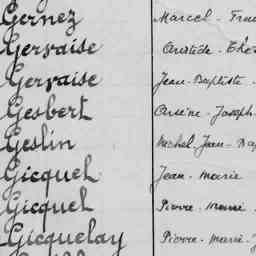 Gernez Marcel - 
Gervaise Aristide - 
Gervaise Jean-Baptiste -
Gesbert Arsène - Joseph
Geslin Michel Jean - 
Gicquel Jean - Marie
Gicquel Pierre - Marie
Gicquelay Pierre - Marie -